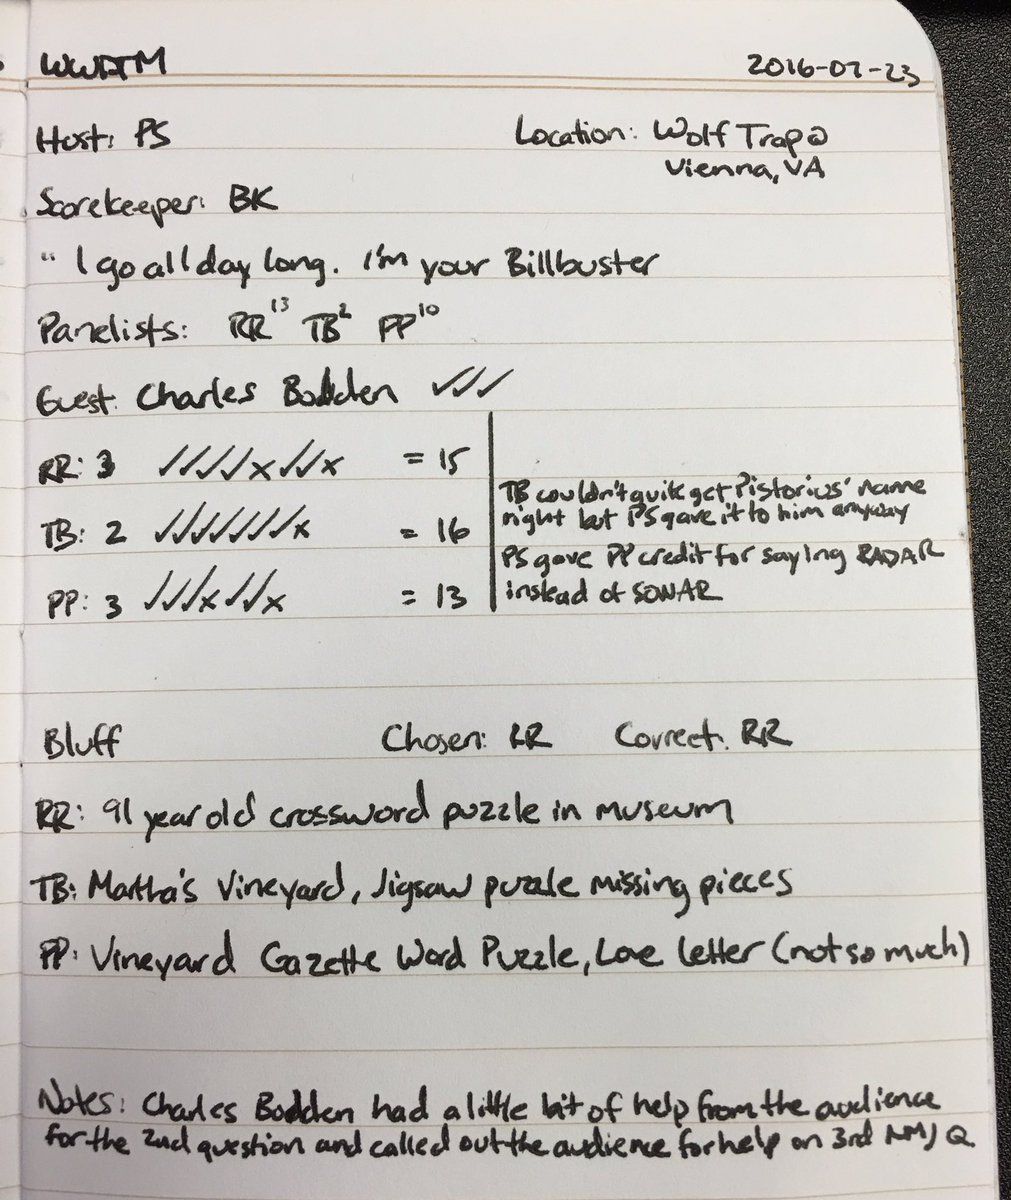 WWDTM 2016-07-23
Host: PS Location: Wolf Trap @
Vienna, VA
Scorekeeper: BK
" I go all day long. I'm your Billbuster
Panelists: RR¹³ TB² PP¹⁰
Guest: Charles Bolden ✓✓✓
RR: 3 ✓✓✓✓x✓✓x = 15
TB: 2 ✓✓✓✓✓✓✓x = 16
PP: 3 ✓✓✓x✓✓x = 13
TB couldn't quite get Pistorius' name
right but PS gave it to him anyway
PS gave PP credit for saying RADAR
instead of SONAR
Bluff Chosen: RR Correct: RR
RR: 91 year old crossword puzzle in museum
TB: Martha's Vineyard, Jigsaw puzzle missing pieces
PP: Vineyard Gazette Word Puzzle, Love letter (not so much)
Notes: Charles Bolden had a little bit of help from the audience
for the 2nd question and called out the audience for help on 3rd NMJ Q